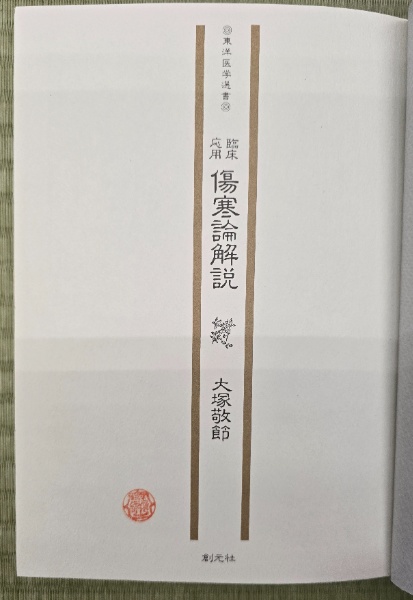 ◎東洋医学選書◎
臨床
応用
傷寒論解説
大塚敬節
創元社